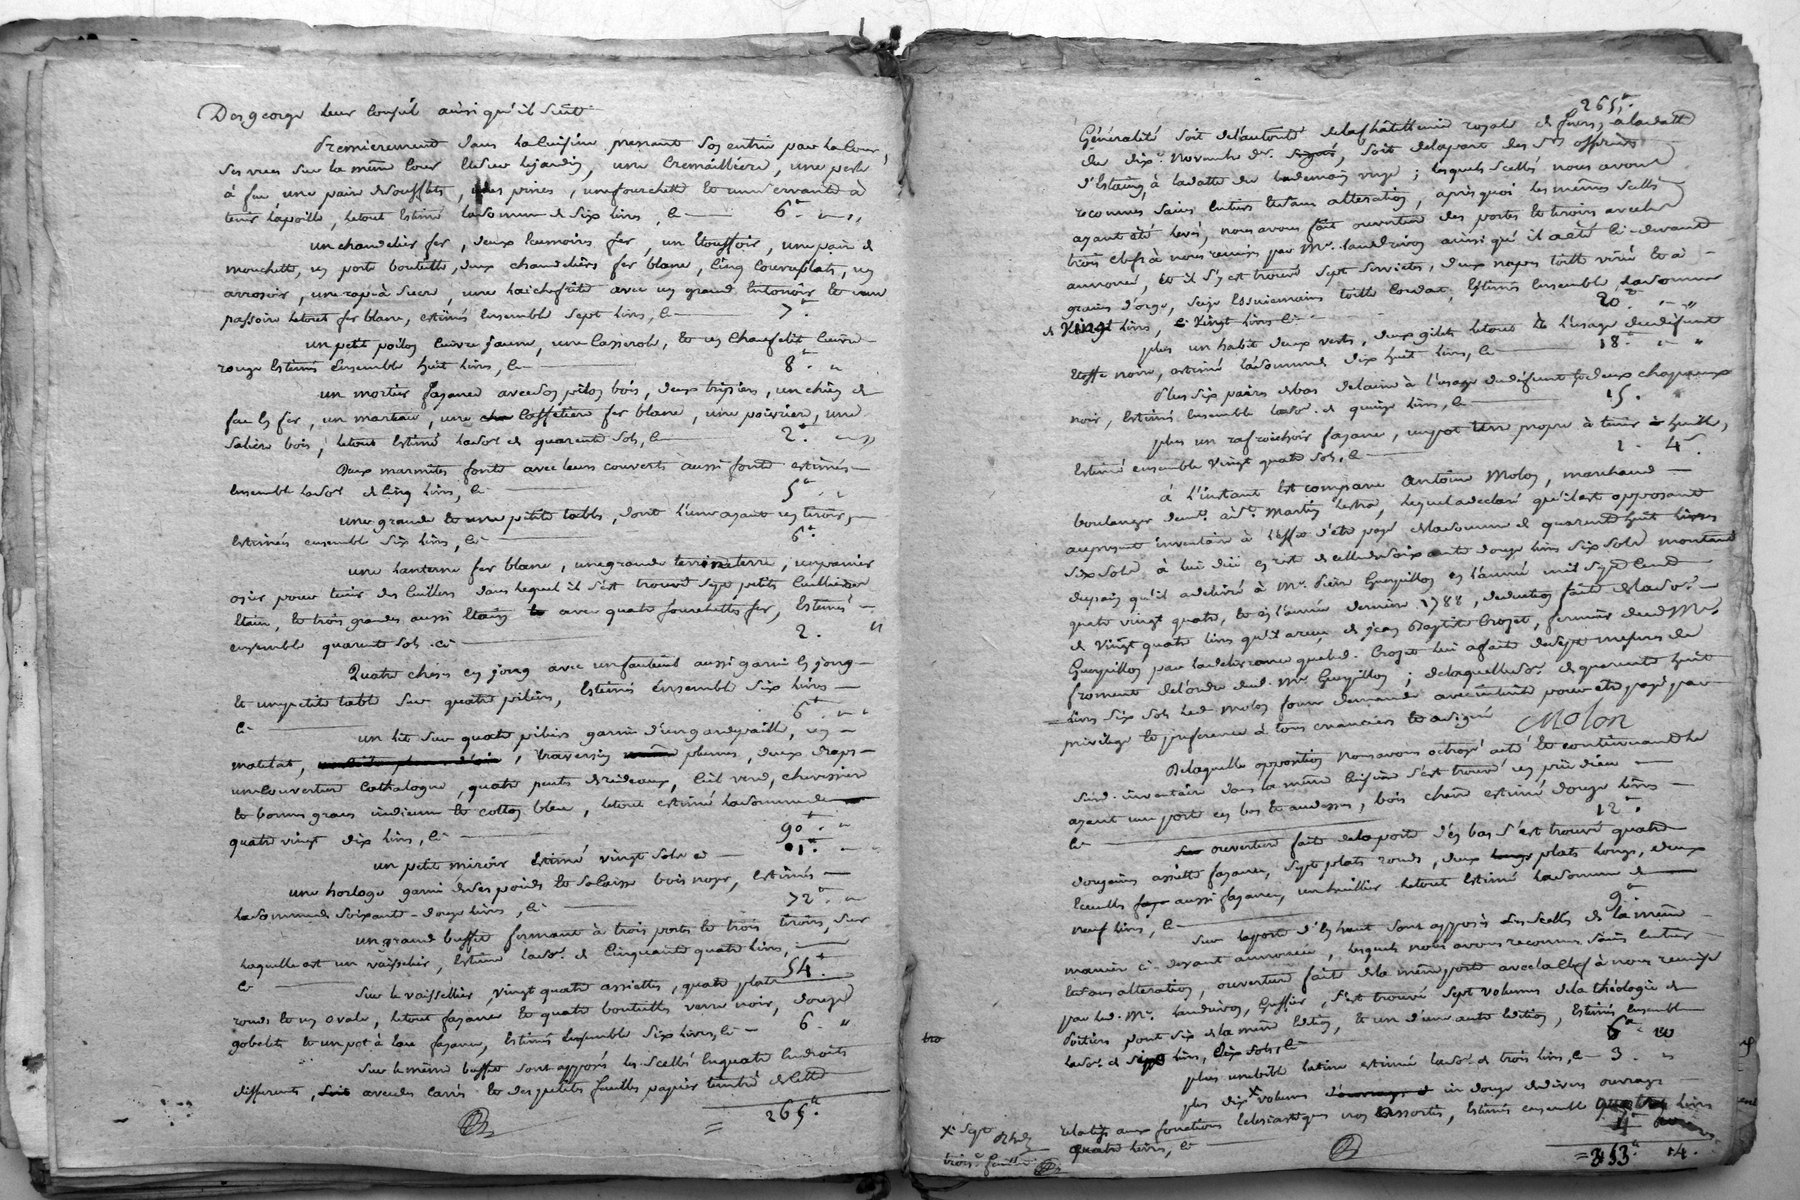 Desgeorge leur conseil ainsi qu'il suit
Premierement dans la cuisine prenant son entrée par la Cour,
ses vues sur la même cour et sur le jardin, une Cremaillère, une pesle
à feu, une paire de soufflets, des pinces, une fourchette et une servante à
tenir la poille, letout Estimé la somme de six livres, Ci — 6.tt " "
un chandelier fer, deux lumoires fer, un Etouffoir, une paire de
mouchette, un porte bouteille, deux chandeliers fer blanc, Cinq Couvreplats, un
arrosoir, une rape à sucre, une lichefrite avec un grand Entonoir et une
passoire letout fer blanc, estimés Ensemble sept livres, Ci — 7.tt
un petit poilon cuivre jaune, une Casserole, et un Chaufelit Cuivre
rouge Estimés Ensemble huit livres, Ci — 8.tt "
un mortier fayance avec son pilon bois, deux trépiers, un chien de
feu en fer, un marteau, une Caffetiere fer blanc, une poivrière, une
saliere bois, letout Estimé la so.e de quarente sols, Ci — 2.tt " "
Deux marmites fonte avec leurs couverts aussi fonte estimés
Ensemble la so.e de Cinq livres, Ci — 5.tt "
une grande et une petite tables, dont l'une ayant un tiroir,
Estimées ensemble six livres, Ci — 6.tt
une lanterne fer blanc, une grande terrine terre, un panier
osier pour tenir des Cuilliers dans lequel il s'est trouvé sept petits Cuilliers
Etain, et trois grandes aussi Etain avec quatre fourchettes fer, Estimés
ensemble quarente sols Ci — 2. "
Quatre chaises en jong avec un fauteuil aussi garni en jong
et une petite table sur quatre piliers, Estimés Ensemble six livres
Ci — 6.tt " "
un lit sur quatre piliers garni d'une gardepaille, un
matelat, , traversin plumes, deux draps
une couverture Cathalogne, quatre pentes de rideaux, Ciel verd, chevissier
et bonnes graces indienne et cotton bleu, letout estimé la somme de
quatre vingt dix livres, Ci — 90.tt "
un petit miroir Estimé vingt sols Ci — 1.tt "
une horloge garni de ses poids et sa Caisse bois noyer, Estimés
la somme de soixante-douze livres, Ci — 72.tt "
un grand buffet formant à trois portes et trois tiroirs, sur
laquelle est un vaisselier, Estimé la so.e de Cinquante quatre livres,
Ci — 54.tt
Sur le vaissellier vingt quatre assiettes, quatre plats
ronds et un ovale, letout fayance et quatre bouteilles verre noir, douze
gobelets et un pot à Eau fayance, Estimés Ensemble six livres, Ci — 6. "
Sur le même buffet sont apposés les scellés en quatre Endroits
differents, avec des Carrés et des petites feuilles papier timbré de Cette
= 265.tt
265.tt
Généralité soit de l'autorité de la châtellenie royale de feurs, à la datte
du dix novembre der. , soit de la part des S.rs officiers
d'Estaing, à la datte du lendemain onze ; lesquels scellés nous avons
reconnus sains Entiers et sans altération, après quoi les mêmes scellés
ayant été levés, nous avons fait ouverture des portes et tiroirs avec les
trois clefs à nous remises par M.e Landrivon ainsi qu'il a été ci-devant
annoncé, et il s'y est trouvé sept serviettes, deux napes toille virée et à
grains d'orge, seize Essuiemains toille Cordat, Estimés Ensemble, la somme
de Vingt livres, Ci Vingt livres Ci — 20.tt " "
plus un habit deux vestes, deux gilets letout à l'usage du defunt
Etoffe noire, estimé la somme dix huit livres, Ci — 18.tt " "
Plus six paires de bas de laine à l'usage du défunt et deux chapeaux
noir, Estimés Ensemble la so.e de quinze livres, Ci — 15.
plus un rafraichoir fayance, un pot terre propre à tenir huille,
Estimé ensemble vingt quatre sols, Ci — 1. 4.s
à l'instant Est comparu Antoine Molon, marchand
boulanger dem.t à S.t Martin Lestra, lequel a declaré qu'il est opposant
au present inventaire à l'effet d'etre payé de la somme de quarente huit livres
six sols à lui düe en reste de celle de soixante douze livres six sols montant
du pain qu'il a delivré à M.e Pierre Guerpillon en l'année mil sept Cent
quatre vingt quatre, et en l'année derniere 1788, deduction faite de la so.e
de Vingt quatre livres qu'il a reçu de jean Baptiste Crozet, fermier dud. M.e
Guerpillon par la delivrance que led. Crozet lui a faite de sept mesures de
froment de l'ordre dud. M.e Guerpillon ; de laquelle so.e de quarente huit
livres six sols led. Molon forme demande avec interets pour etre payé par
privilege et preference à tous creanciers et a signé Molon
De laquelle opposition nous avons octroyé acte et continuant le
susd. inventaire dans la même Cuisine s'est trouvé un prie dieu
ayant une porte en bas et au dessus, bois chêne estimé douze livres
Ci — 12.tt
ouverture faite de la porte d'en bas s'est trouvé quatre
douzaines assiette fayance, sept plats ronds, deux plats longs, deux
Ecuelles aussi fayance, un huillier letout Estimé la somme de
neuf livres, Ci — 9.tt
Sur la porte d'en haut sont apposés des scellés de la même
maniere ci-devant annoncée, lesquels nous avons reconnus sains Entiers
et sans alteration, ouverture faite de la même porte avec la clef à nous remise
par led. M.e Landrivon, Greffier, s'est trouvé sept volumes de la théologie de
Poitiers dont six de la même Edition, et un d'une autre Edition, Estimés Ensemble
la so.e de livres, dix sols, Ci — 6.tt 10
plus une bible latine estimée la so.e de trois livres, Ci — 3. "
plus dix volumes in douze de divers ouvrages
relatifs aux fonctions Eclesiastiques non assortis, Estimés ensemble quatre livres
quatre livres, Ci — 4.tt
= 353.tt 14.
X.e Sept
trois.e feuille